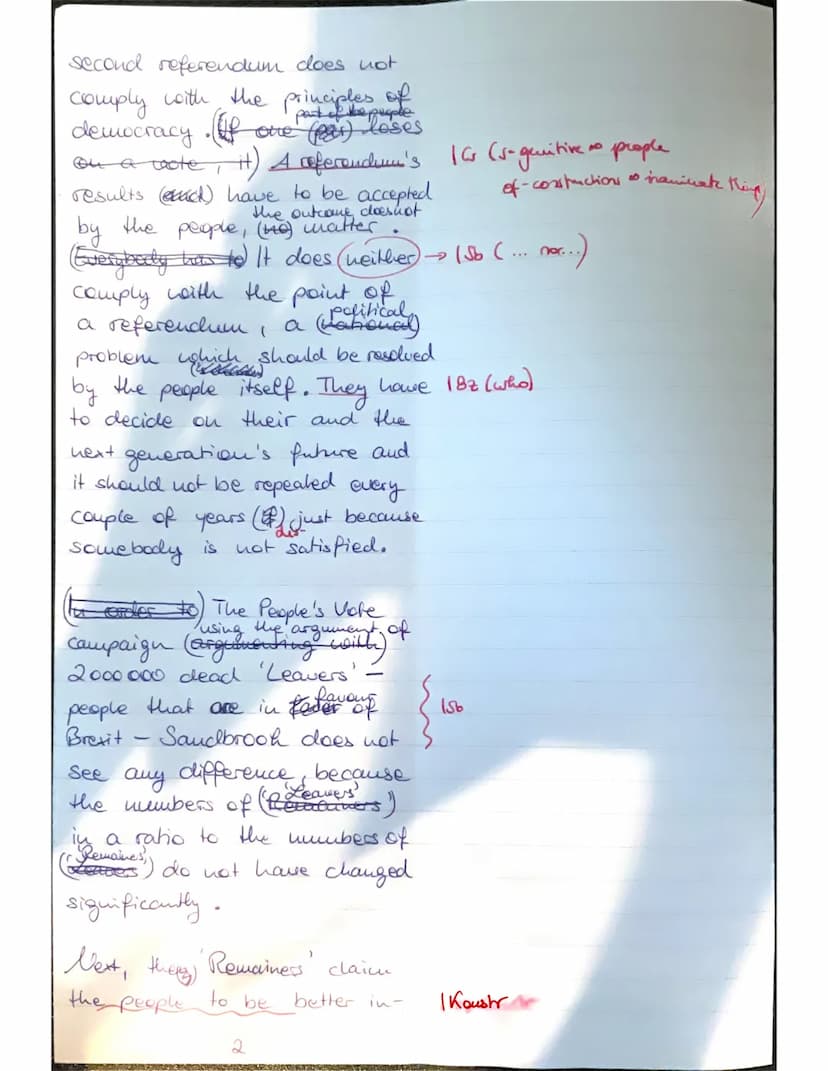 second referendum does not
comply with the principles of
part of the people
democracy. (If one (par) loses
on a vote, it) A referendum's |Gr (s-genitive → people
of-constructions → inanimate things)
results (and) have to be accepted
the outcome does not
by the people, (no) matter.
(Everybody has to) It does neither → |Sb (... nor...)
comply with the point of
political
a referendum, a (national)
problem which should be resolved
by the people itself. They have |Bz (who)
to decide on their and the
next generation's future and
it should not be repeated every
couple of years (if) just because
dis-
somebody is not satisfied.
(In order to) The People's Vote
using the argument of
campaign (argumenting with)
2000000 dead 'Leavers' –
favour
people that are in of |Sb
Brexit – Sandbrook does not
see any difference, because
'Leavers'
the numbers of (Remainers")
in a ratio to the numbers of
'Remaines'
(Leaves) do not have changed
significantly.
Next, the 'Remainess' claim
the people to be better in- |Konstr
2